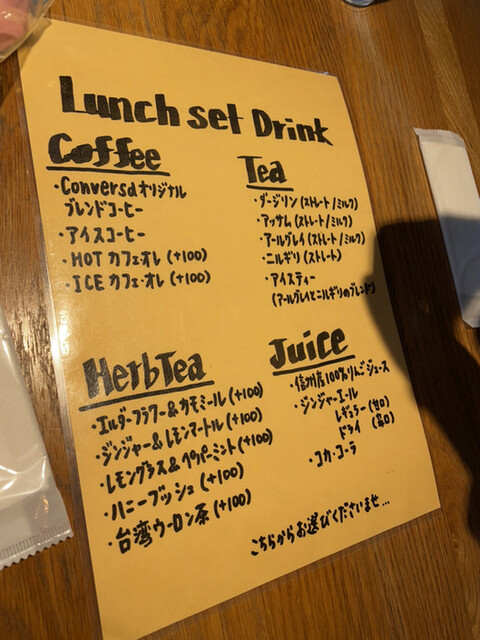 Lunch set Drink
Coffee
・Conversaオリジナル
ブレンドコーヒー
・アイスコーヒー
・HOT カフェオレ (+100)
・ICE カフェ・オレ (+100)
Tea
・ダージリン (ストレート/ミルク)
・アッサム (ストレート/ミルク)
・アールグレイ (ストレート/ミルク)
・ニルギリ (ストレート)
・アイスティー
(アールグレイとニルギリのブレンド)
HerbTea
・エルダーフラワー&カモミール (+100)
・ジンジャー&レモンマートル (+100)
・レモングラス&ペパーミント (+100)
・ハニーブッシュ (+100)
・台湾ウーロン茶 (+100)
Juice
・信州産100%りんごジュース
・ジンジャーエール
レギュラー (甘口)
ドライ (辛口)
・コカ・コーラ
こちらからお選びくださいませ...